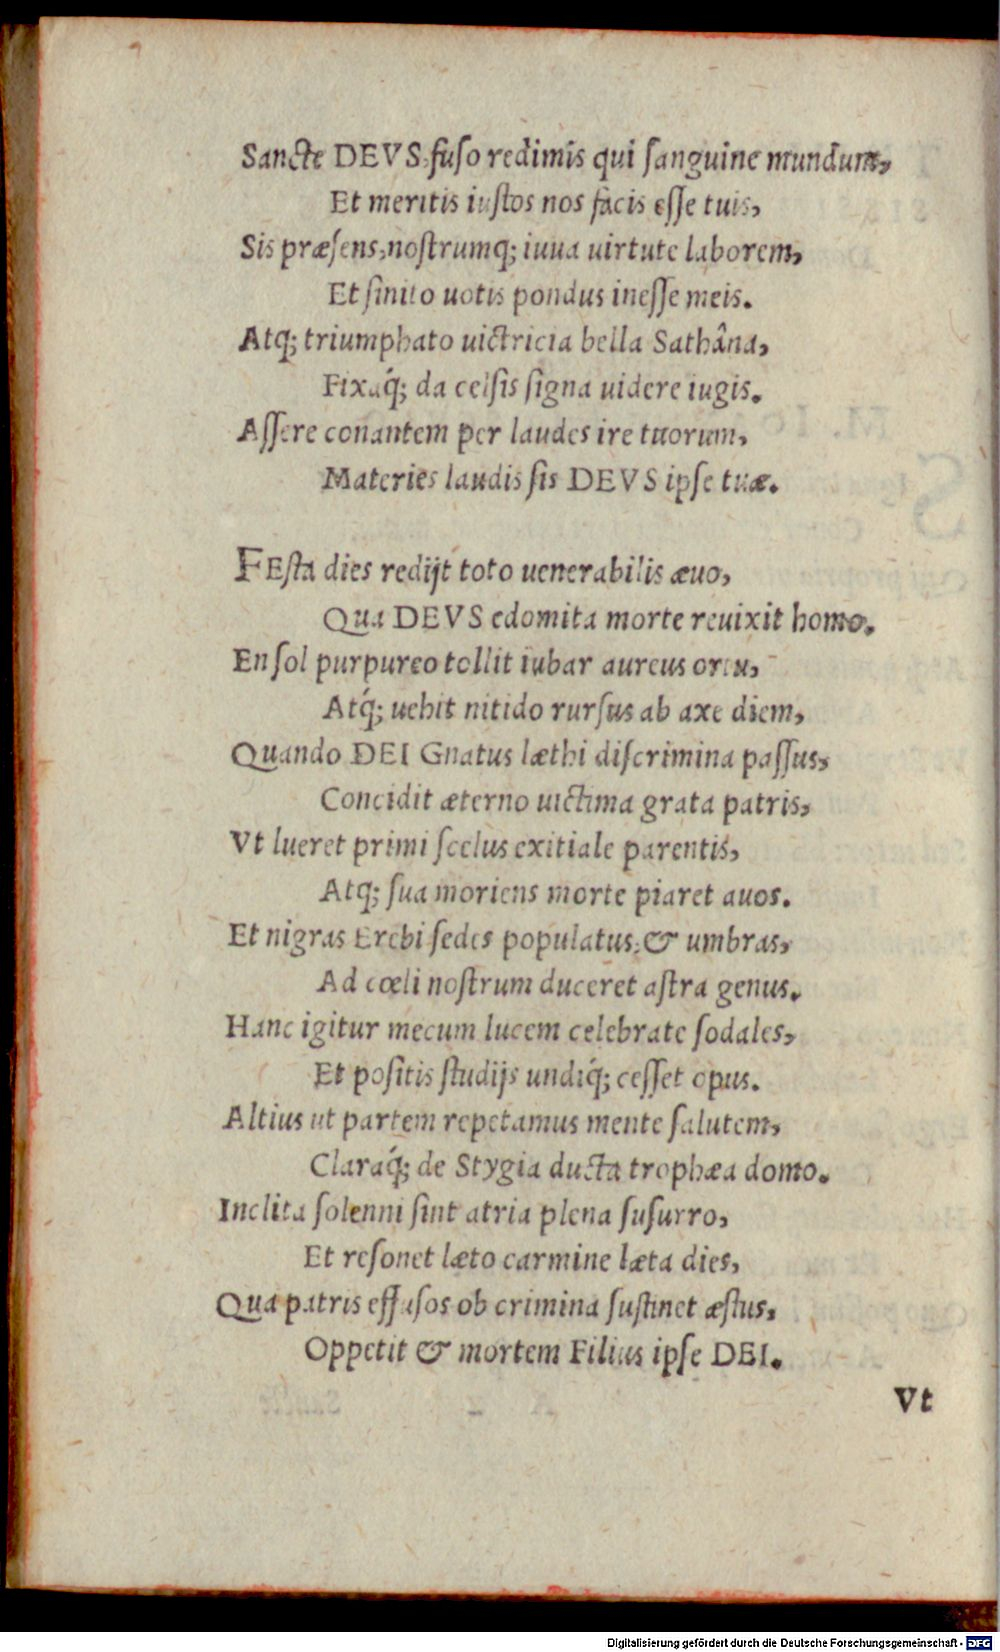 Sancte DEVS, fuso redimis qui sanguine mundum,
Et meritis iustos nos facis esse tuis,
Sis præsens, nostrumq; iuua uirtute laborem,
Et sinito uotis pondus inesse meis.
Atq; triumphato uictricia bella Sathâna,
Fixaq́; da celsis signa uidere iugis.
Assere conantem per laudes ire tuorum,
Materies laudis sis DEVS ipse tuæ.
FEsta dies redijt toto uenerabilis æuo,
Qua DEVS edomita morte reuixit homo.
En sol purpureo tollit iubar aureus ortu,
Atq́; uehit nitido rursus ab axe diem,
Quando DEI Gnatus læthi discrimina passus,
Concidit æterno uictima grata patris,
Vt lueret primi scelus exitiale parentis,
Atq; sua moriens morte piaret auos.
Et nigras Erebi sedes populatus, & umbras,
Ad cœli nostrum duceret astra genus.
Hanc igitur mecum lucem celebrate sodales,
Et positis studijs undiq́; cesset opus.
Altius ut partem repetamus mente salutem,
Claraq́; de Stygia ducta trophæa domo.
Inclita solenni sint atria plena susurro,
Et resonet læto carmine læta dies,
Qua patris effusos ob crimina sustinet æstus,
Oppetit & mortem Filius ipse DEI.
Vt
Digitalisierung gefördert durch die Deutsche Forschungsgemeinschaft - DFG